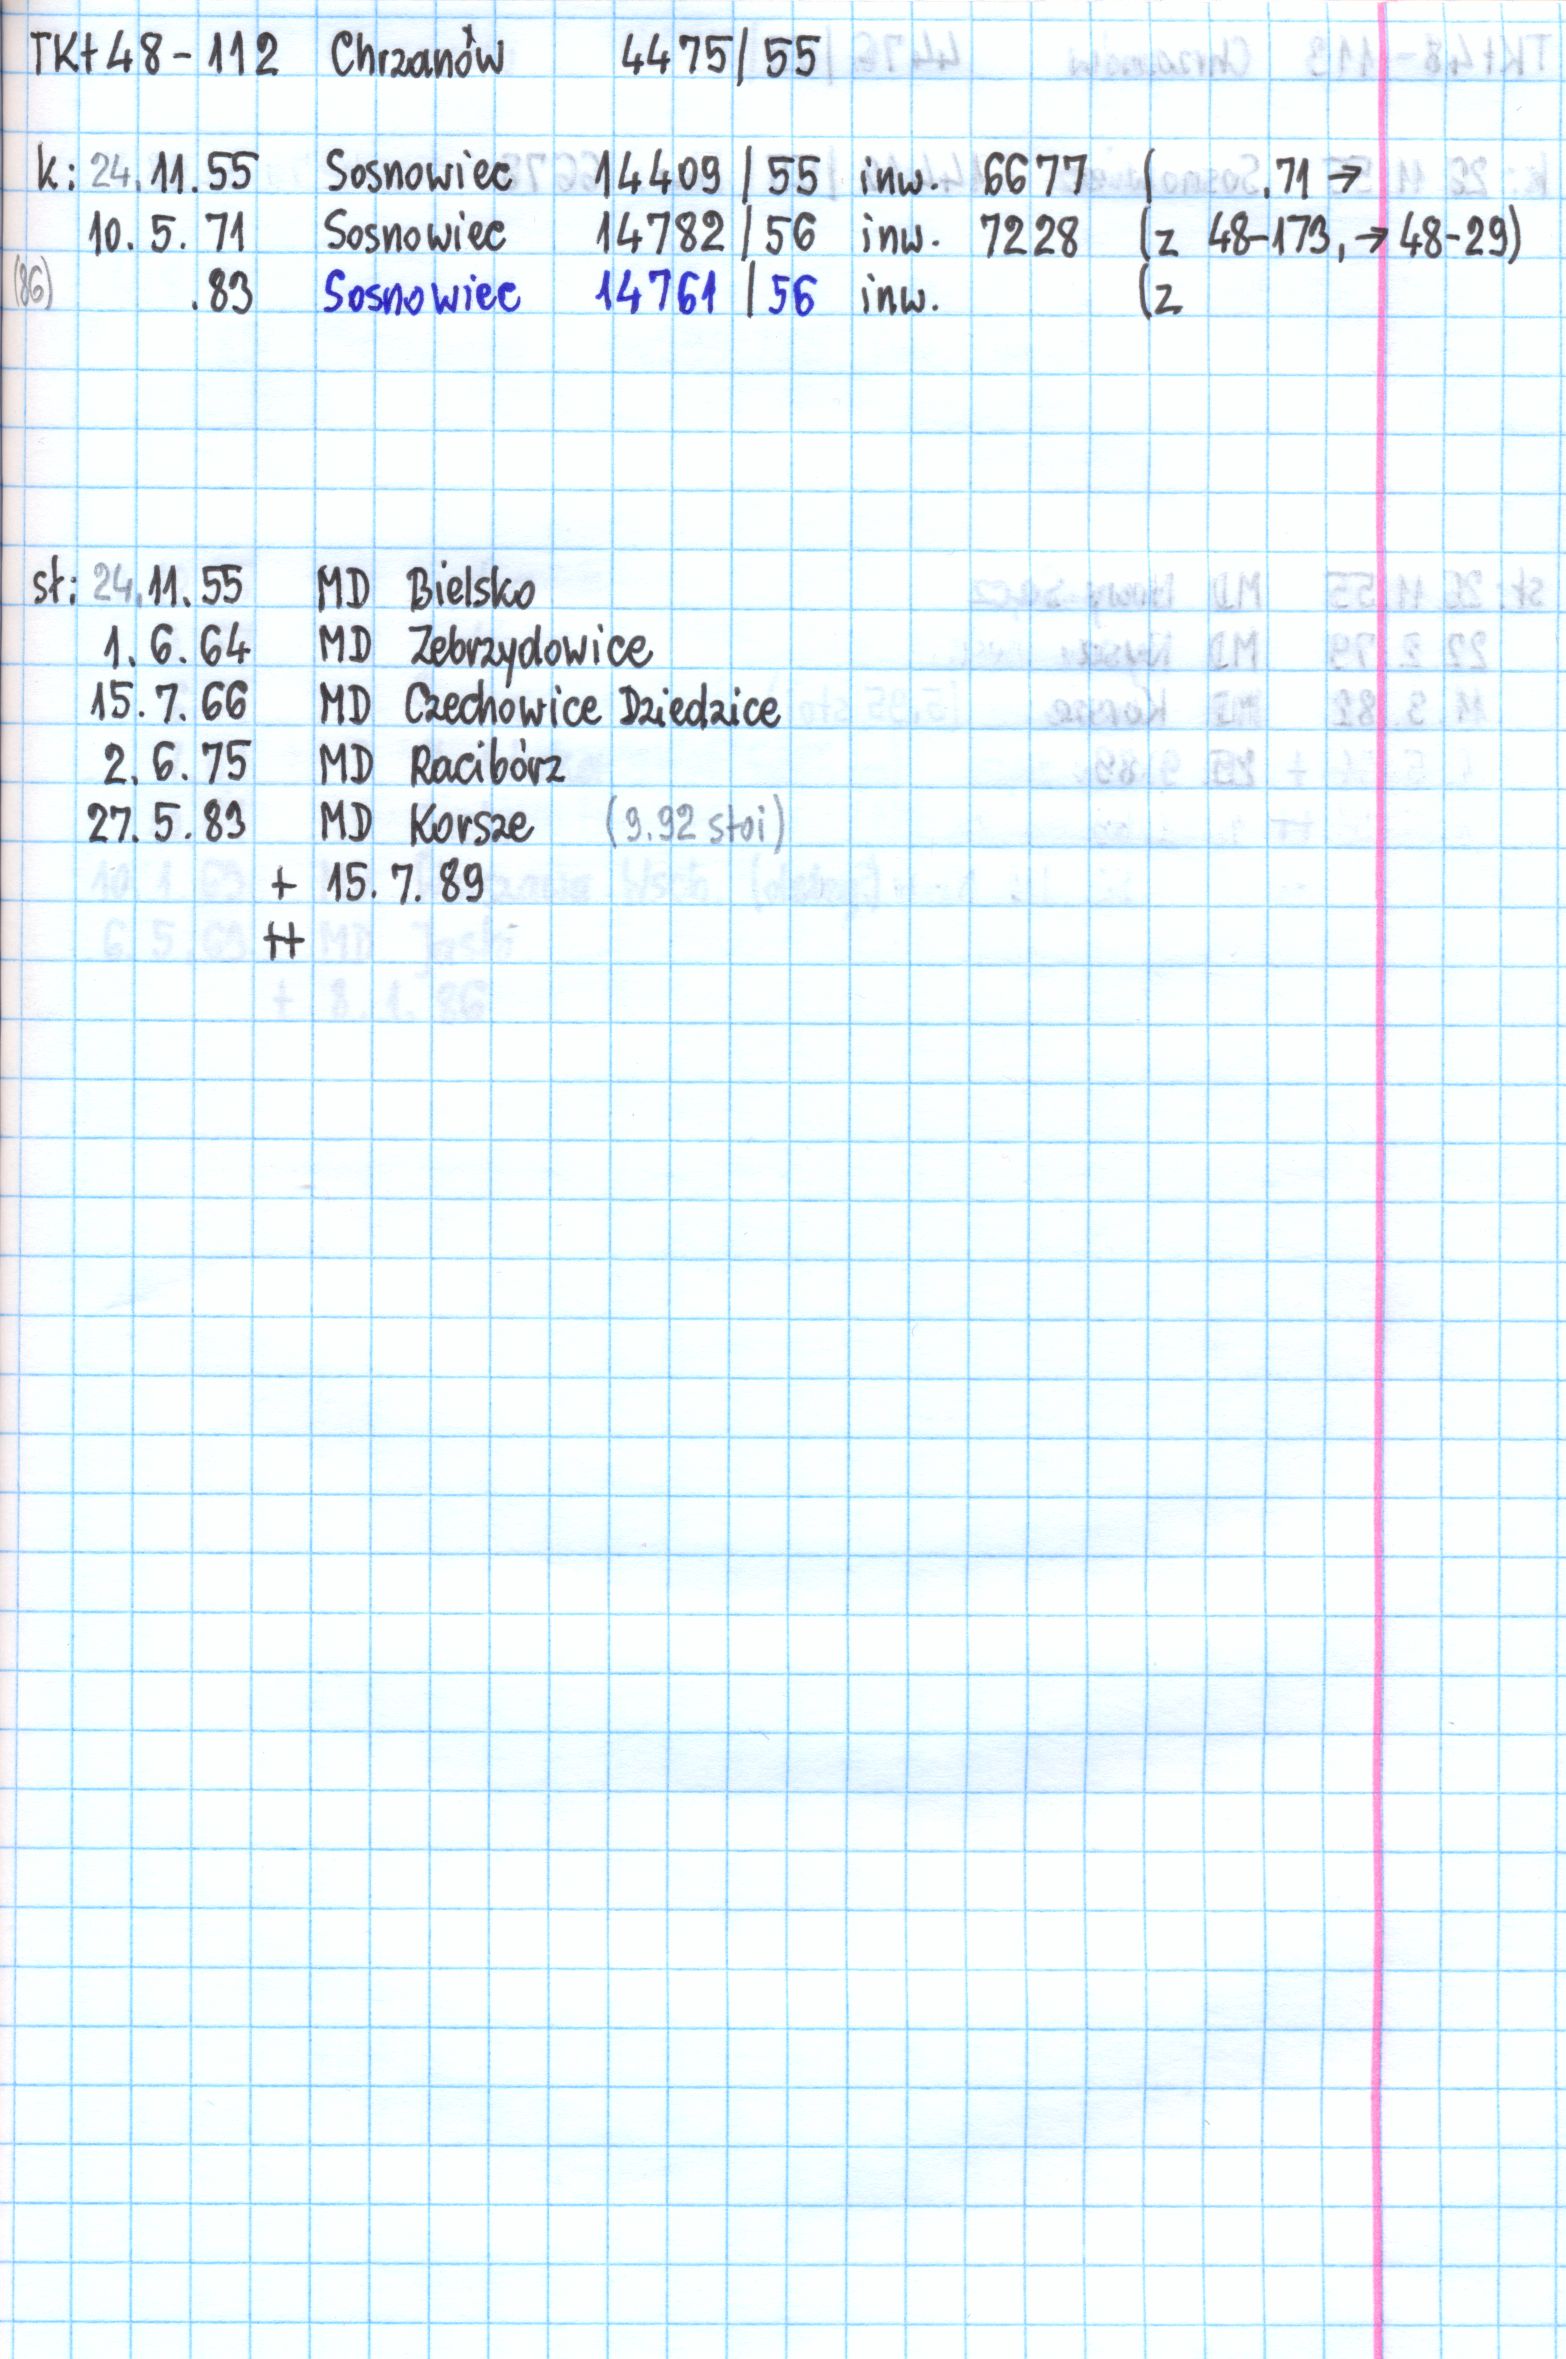 TKt48-112 Chrzanów 4475/55
k: 24.11.55 Sosnowiec 14409/55 inw. 6677 ( .71 →
10.5.71 Sosnowiec 14782/56 inw. 7228 (z 48-173, → 48-29)
(86) .83 Sosnowiec 14761/56 inw. (z
st: 24.11.55 MD Bielsko
1.6.64 MD Zebrzydowice
15.7.66 MD Czechowice Dziedzice
2.6.75 MD Racibórz
27.5.83 MD Korsze (9.92 stoi)
+ 15.7.89
++